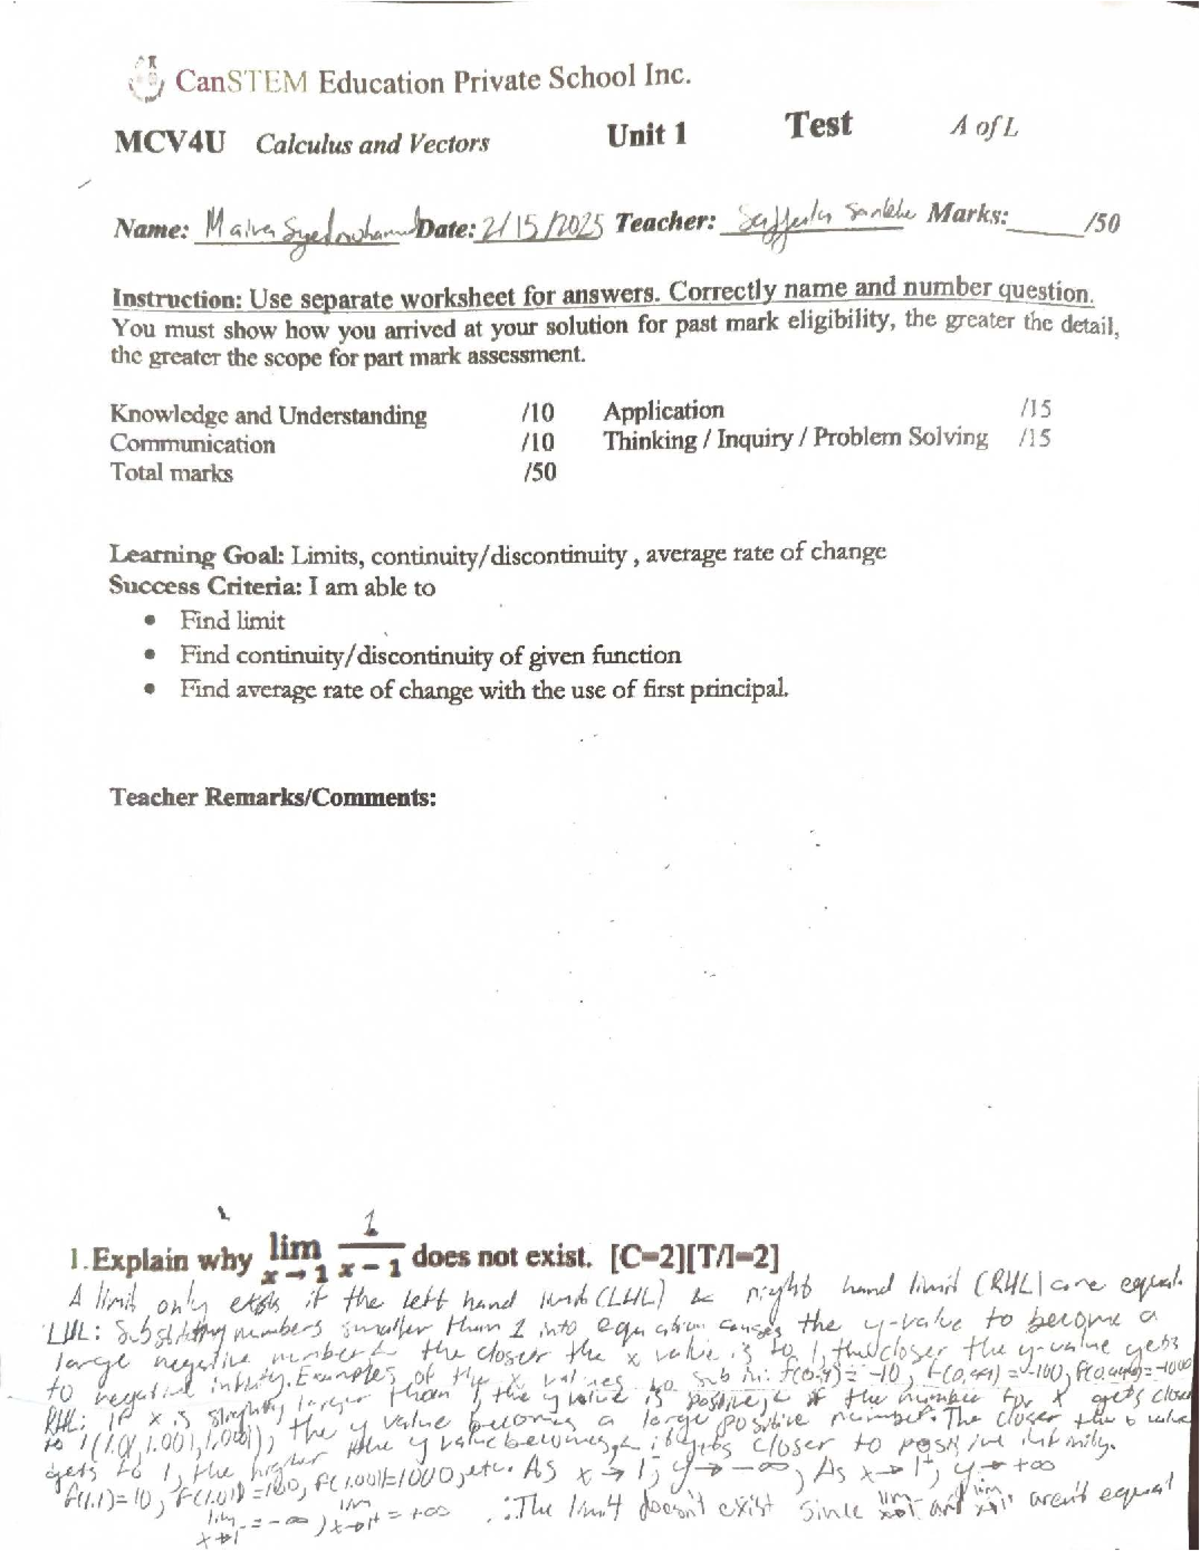 CanSTEM Education Private School Inc.
MCV4U Calculus and Vectors Unit 1 Test A of L
Name: Maiva Syedmohamed Date: 2/15/2025 Teacher: Marks: /50
Instruction: Use separate worksheet for answers. Correctly name and number question.
You must show how you arrived at your solution for past mark eligibility, the greater the detail,
the greater the scope for part mark assessment.
Knowledge and Understanding /10 Application /15
Communication /10 Thinking / Inquiry / Problem Solving /15
Total marks /50
Learning Goal: Limits, continuity/discontinuity , average rate of change
Success Criteria: I am able to
• Find limit
• Find continuity/discontinuity of given function
• Find average rate of change with the use of first principal.
Teacher Remarks/Comments:
1.Explain why lim x→1 1/(x-1) does not exist. [C=2][T/I=2]
A limit only exists if the left hand limit (LHL) & right hand limit (RHL) are equal.
LHL: Substituting numbers smaller than 1 into equation causes the y-value to become a
large negative number & the closer the x value is to 1, the closer the y-value gets
to negative infinity. Examples of the x values to sub in: f(0.9)=-10, f(0.99)=-100, f(0.999)=-1000
RHL: If x is slightly larger than 1, the y value is positive, & if the number for x gets closer
to 1(1.01, 1.001, 1.0001), the y value becomes a large positive number. The closer the x value
gets to 1, the higher the y value becomes, & it gets closer to positive infinity.
f(1.1)=10, f(1.01)=100, f(1.001)=1000, etc. As x→1⁻, y→-∞, As x→1⁺, y→+∞
lim x→1⁻ = -∞, lim x→1⁺ = +∞ ∴ The limit doesn't exist since lim x→1⁻ and lim x→1⁺ aren't equal